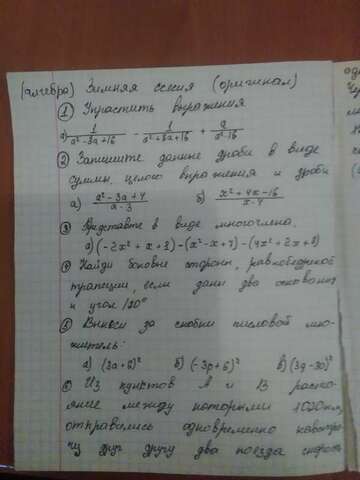 (алгебра) Зимняя сессия (оригинал)
① Упрастить выражения
а) 1/(a²-8a+16) - 1/(a²+8a+16) + a/(a²-16)
② Запишите данные дроби в виде
суммы, целого выражения и дроби
а) (a²-3a+4)/(a-3) б) (x²+4x-16)/(x-4)
③ Представьте в виде многочлена.
а) (-2x²+x+2)-(x²-x+7)-(4x²+2x+8)
④ Найди боковые стороны, равнобедренной
трапеции, если даны два основания
и угол 120°
⑤ Выноси за скобки числовой мно-
житель:
а) (3a+6)² б) (-3p+6)² в) (3q-30)²
⑥ Из пунктов А и В рассто-
яние между которыми 1020км,
отправились одновременно навстре-
чу друг другу два поезда скорость